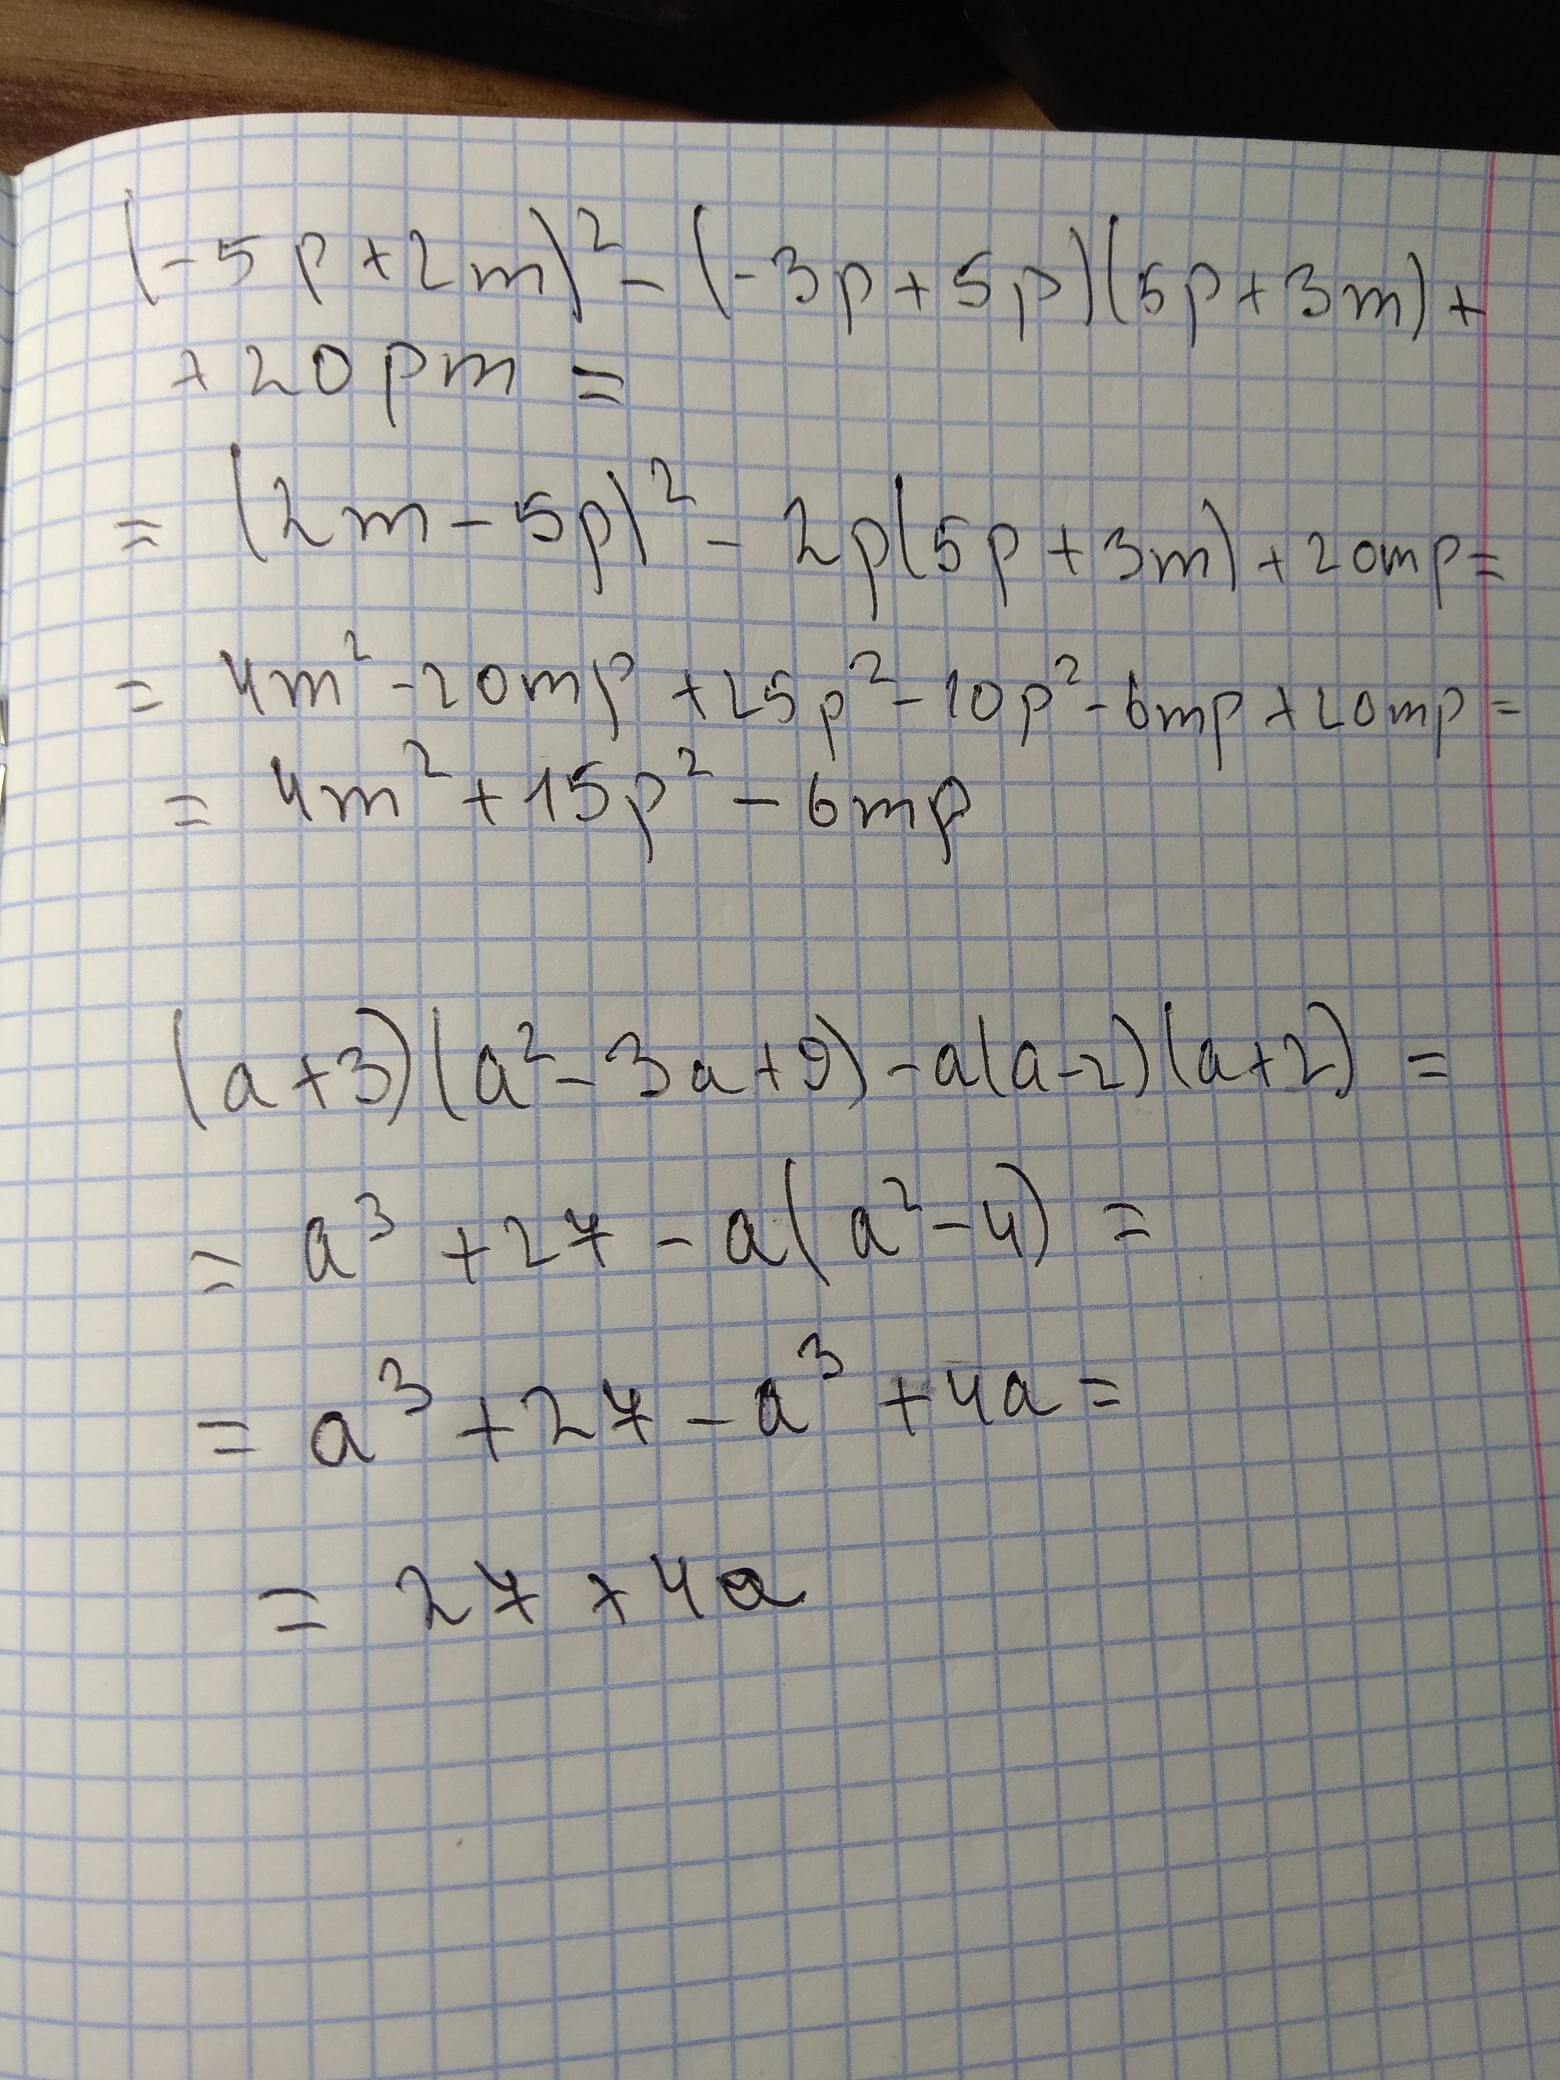 (-5p+2m)² - (-3p+5p)(5p+3m)+
+20pm =
= (2m-5p)² - 2p(5p+3m)+20mp=
= 4m² -20mp +25p² -10p² -6mp+20mp=
= 4m² +15p² -6mp
(a+3)(a² -3a+9) -a(a-2)(a+2) =
= a³ +27 -a(a² -4) =
= a³ +27 -a³ +4a =
= 27+4a